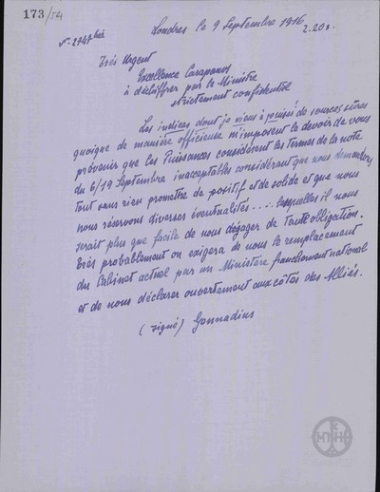 173/54
Londres le 9 Septembre 1916
2.20 s.
No 2747 bis
Très Urgent
Excellence Carapanos
à déchiffrer par le Ministre
strictement confidentiel
Les indices dont je viens à puisés de sources sûres
quoique de manière officieuse m'imposent le devoir de vous
prévenir que les Puissances considèrent les termes de la note
du 6/19 Septembre inacceptables considérant que nous demandons
tout sans rien promettre de positif et de solide et que nous
nous réservons diverses éventualités .... lesquelles il nous
serait plus que facile de nous dégager de toute obligation.
Très probablement on exigera de nous le remplacement
du Cabinet actuel par un Ministère franchement national
et de nous déclarer ouvertement aux côtés des Alliés.
(signé) Gennadius